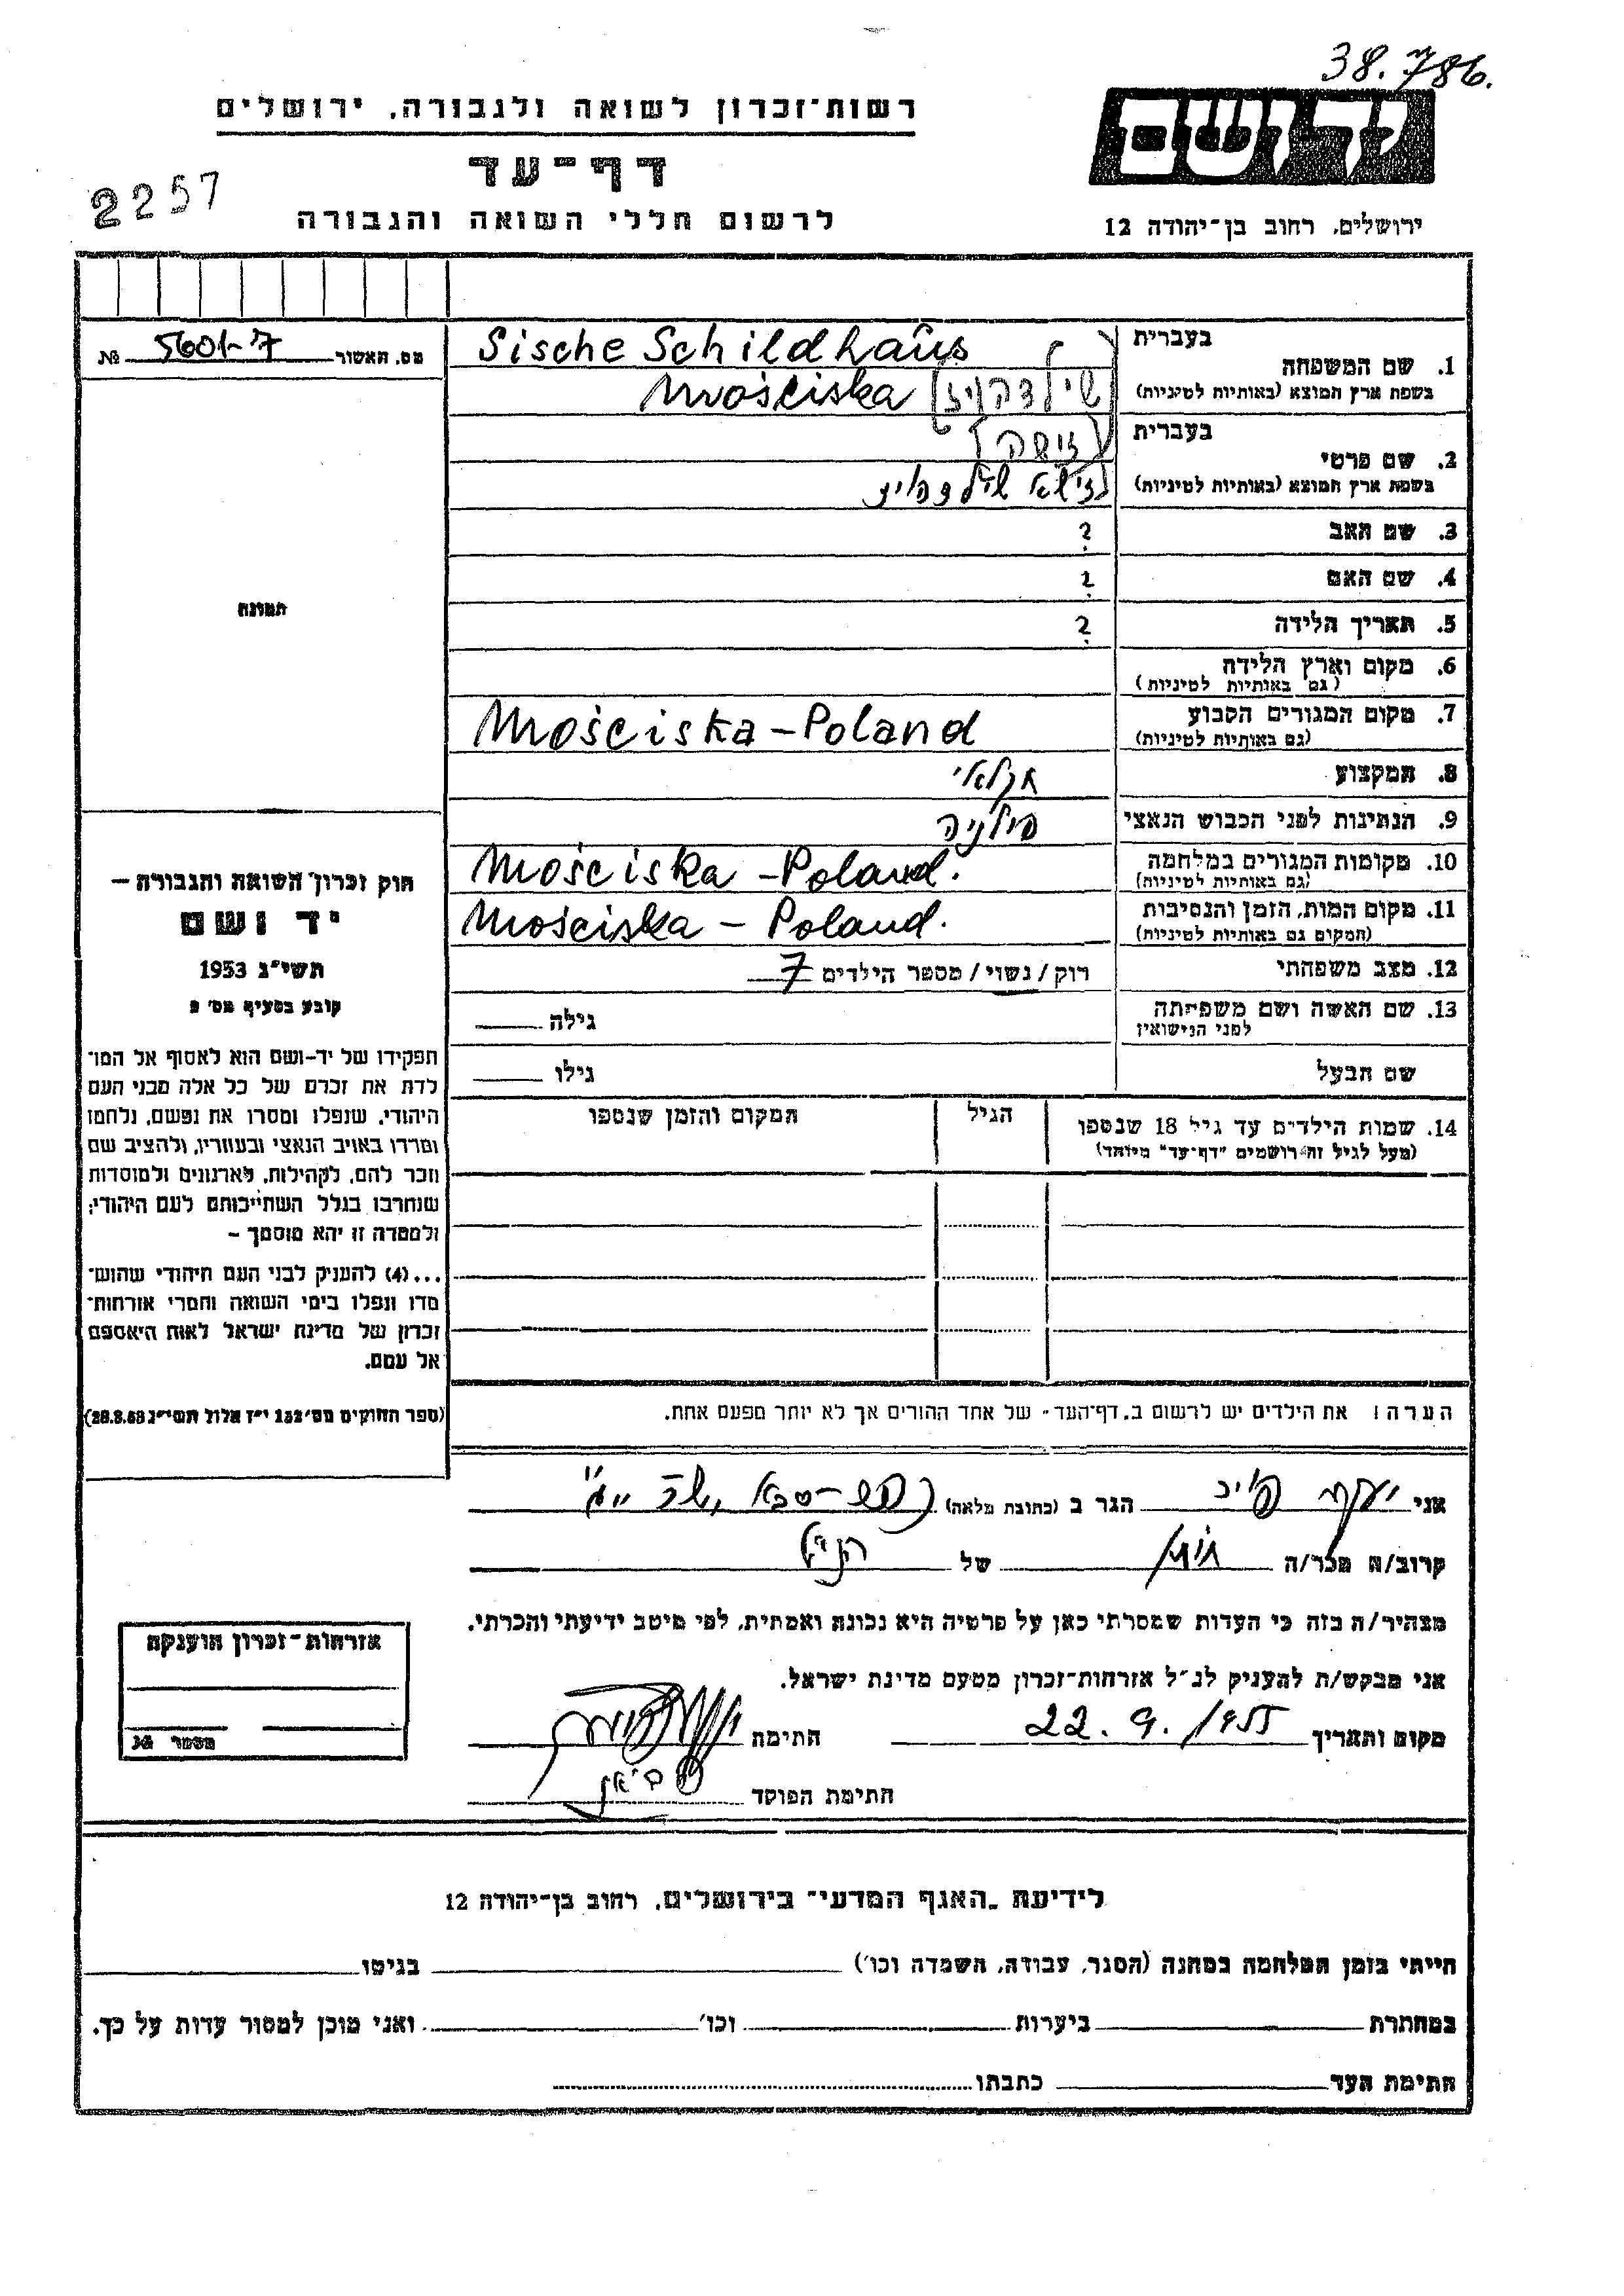 38.786.
יד ושם
רשות־זכרון לשואה ולגבורה, ירושלים
דף־עד
2257
לרשום חללי השואה והגבורה
ירושלים, רחוב בן־יהודה 12
מס. האשור 5601-7 №
בעברית
1. שם המשפחה
בשפת ארץ המוצא (באותיות לטיניות)
Sische Schildhaus
Mościska [שילדהויז]
בעברית
2. שם פרטי
בשפת ארץ המוצא (באותיות לטיניות)
[זישה]
3. שם האב ?
4. שם האם ?
5. תאריך הלידה ?
6. מקום וארץ הלידה
(גם באותיות לטיניות)
7. מקום המגורים הקבוע
(גם באותיות לטיניות)
Mościska – Poland
8. המקצוע חקלאי
9. הנתינות לפני הכבוש הנאצי פולניה
10. מקומות המגורים במלחמה
(גם באותיות לטיניות)
Mościska – Poland.
11. מקום המות, הזמן והנסיבות
(המקום גם באותיות לטיניות)
Mościska – Poland.
12. מצב משפחתי רוק / נשוי / מספר הילדים 7
13. שם האשה ושם משפחתה
לפני הנישואין
גילה
שם הבעל גילו
14. שמות הילדים עד גיל 18 שנספו
(מעל לגיל זה רושמים "דף־עד" מיוחד)
הגיל
המקום והזמן שנספו
הערה: את הילדים יש לרשום ב„דף־העד" של אחד ההורים אך לא יותר מפעם אחת.
תמונה
חוק זכרון השואה והגבורה –
יד ושם
תשי"ג 1953
קובע בסעיף מס' 2
תפקידו של יד-ושם הוא לאסוף אל המו־
לדת את זכרם של כל אלה מבני העם
היהודי, שנפלו ומסרו את נפשם, נלחמו
ומרדו באויב הנאצי ובעוזריו, ולהציב שם
וזכר להם, לקהילות, לארגונים ולמוסדות
שנחרבו בגלל השתייכותם לעם היהודי;
ולמטרה זו יהא מוסמך –
...(4) להעניק לבני העם היהודי שהוש־
מדו ונפלו בימי השואה והמרי אזרחות־
זכרון של מדינת ישראל לאות היאספם
אל עמם.
(ספר החוקים מס' 132 י"ז אלול תשי"ג 28.8.53)
אני יעקב הגר ב (כתובת מלאה)
קרוב/ה מכר/ה של הנ"ל
מצהיר/ה בזה כי העדות שמסרתי כאן על פרטיה היא נכונה ואמתית, לפי מיטב ידיעתי והכרתי.
אני מבקש/ת להעניק לנ"ל אזרחות־זכרון מטעם מדינת ישראל.
מקום ותאריך 22. 9. חתימה
חתימת הפוקד
אזרחות־זכרון הוענקה
מספר №
לידיעת „האגף המדעי" בירושלים, רחוב בן־יהודה 12
הייתי בזמן המלחמה במחנה (הסגר, עבודה, השמדה וכו') בגיטו
במחתרת ביערות וכו' ואני מוכן למסור עדות על כך.
חתימת העד כתבתו